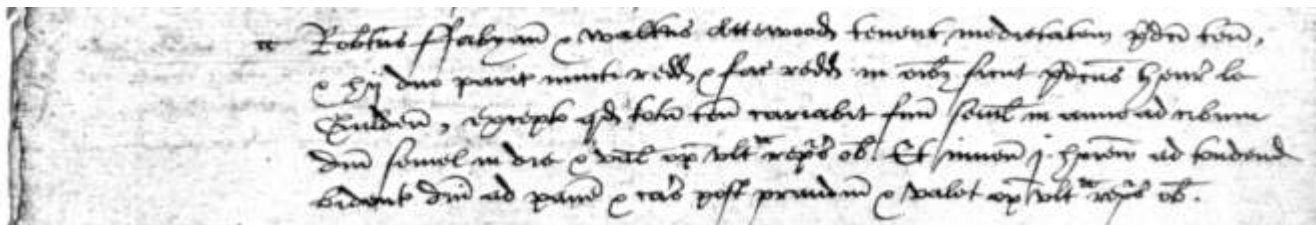 Robtus ffabyan & Waltus Attewood tenent medietatem pdci ten,
& hij duo parit iuncti redd & fac redd in oibz sicut pdcus Henr le
excepto qd totu ten cariabit fimu semel in anno ad cibum
dni semel in die & val op ult reps ob. Et inven j hoiem ad tondend
bident dni ad pane & cas post prandiu & valet op ult reps ob.